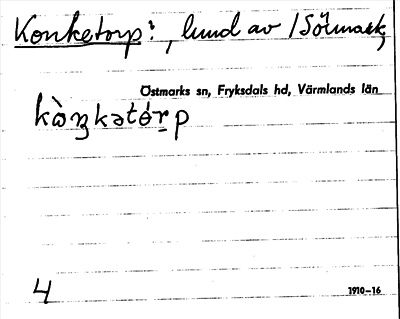 Konketorp:, lund av /Sörmark,
Östmarks sn, Fryksdals hd, Värmlands län
kὼŋkətórp
4
1910–16